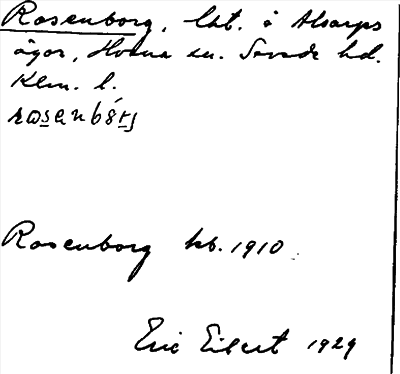 Rosenborg, lht. å Alsarps
ägor, Hvena sn. Sevede hd.
Klm. l.
rosenbórj
Rosenborg kb. 1910
Eric Eilert 1929